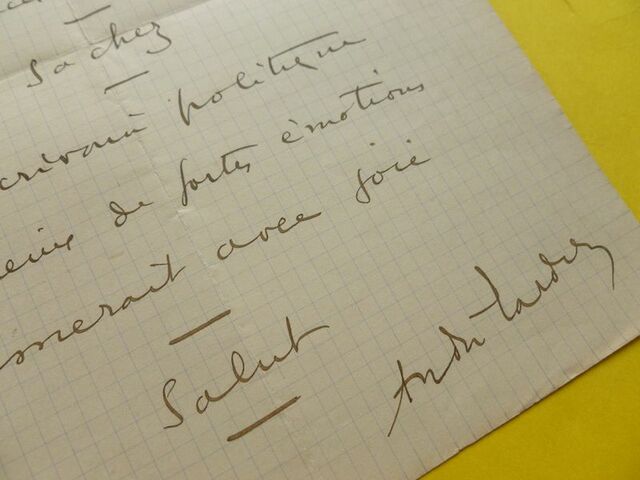 Sachez
crivain politique
eux de fortes émotions
merait avec joie
Salut
André Tardieu